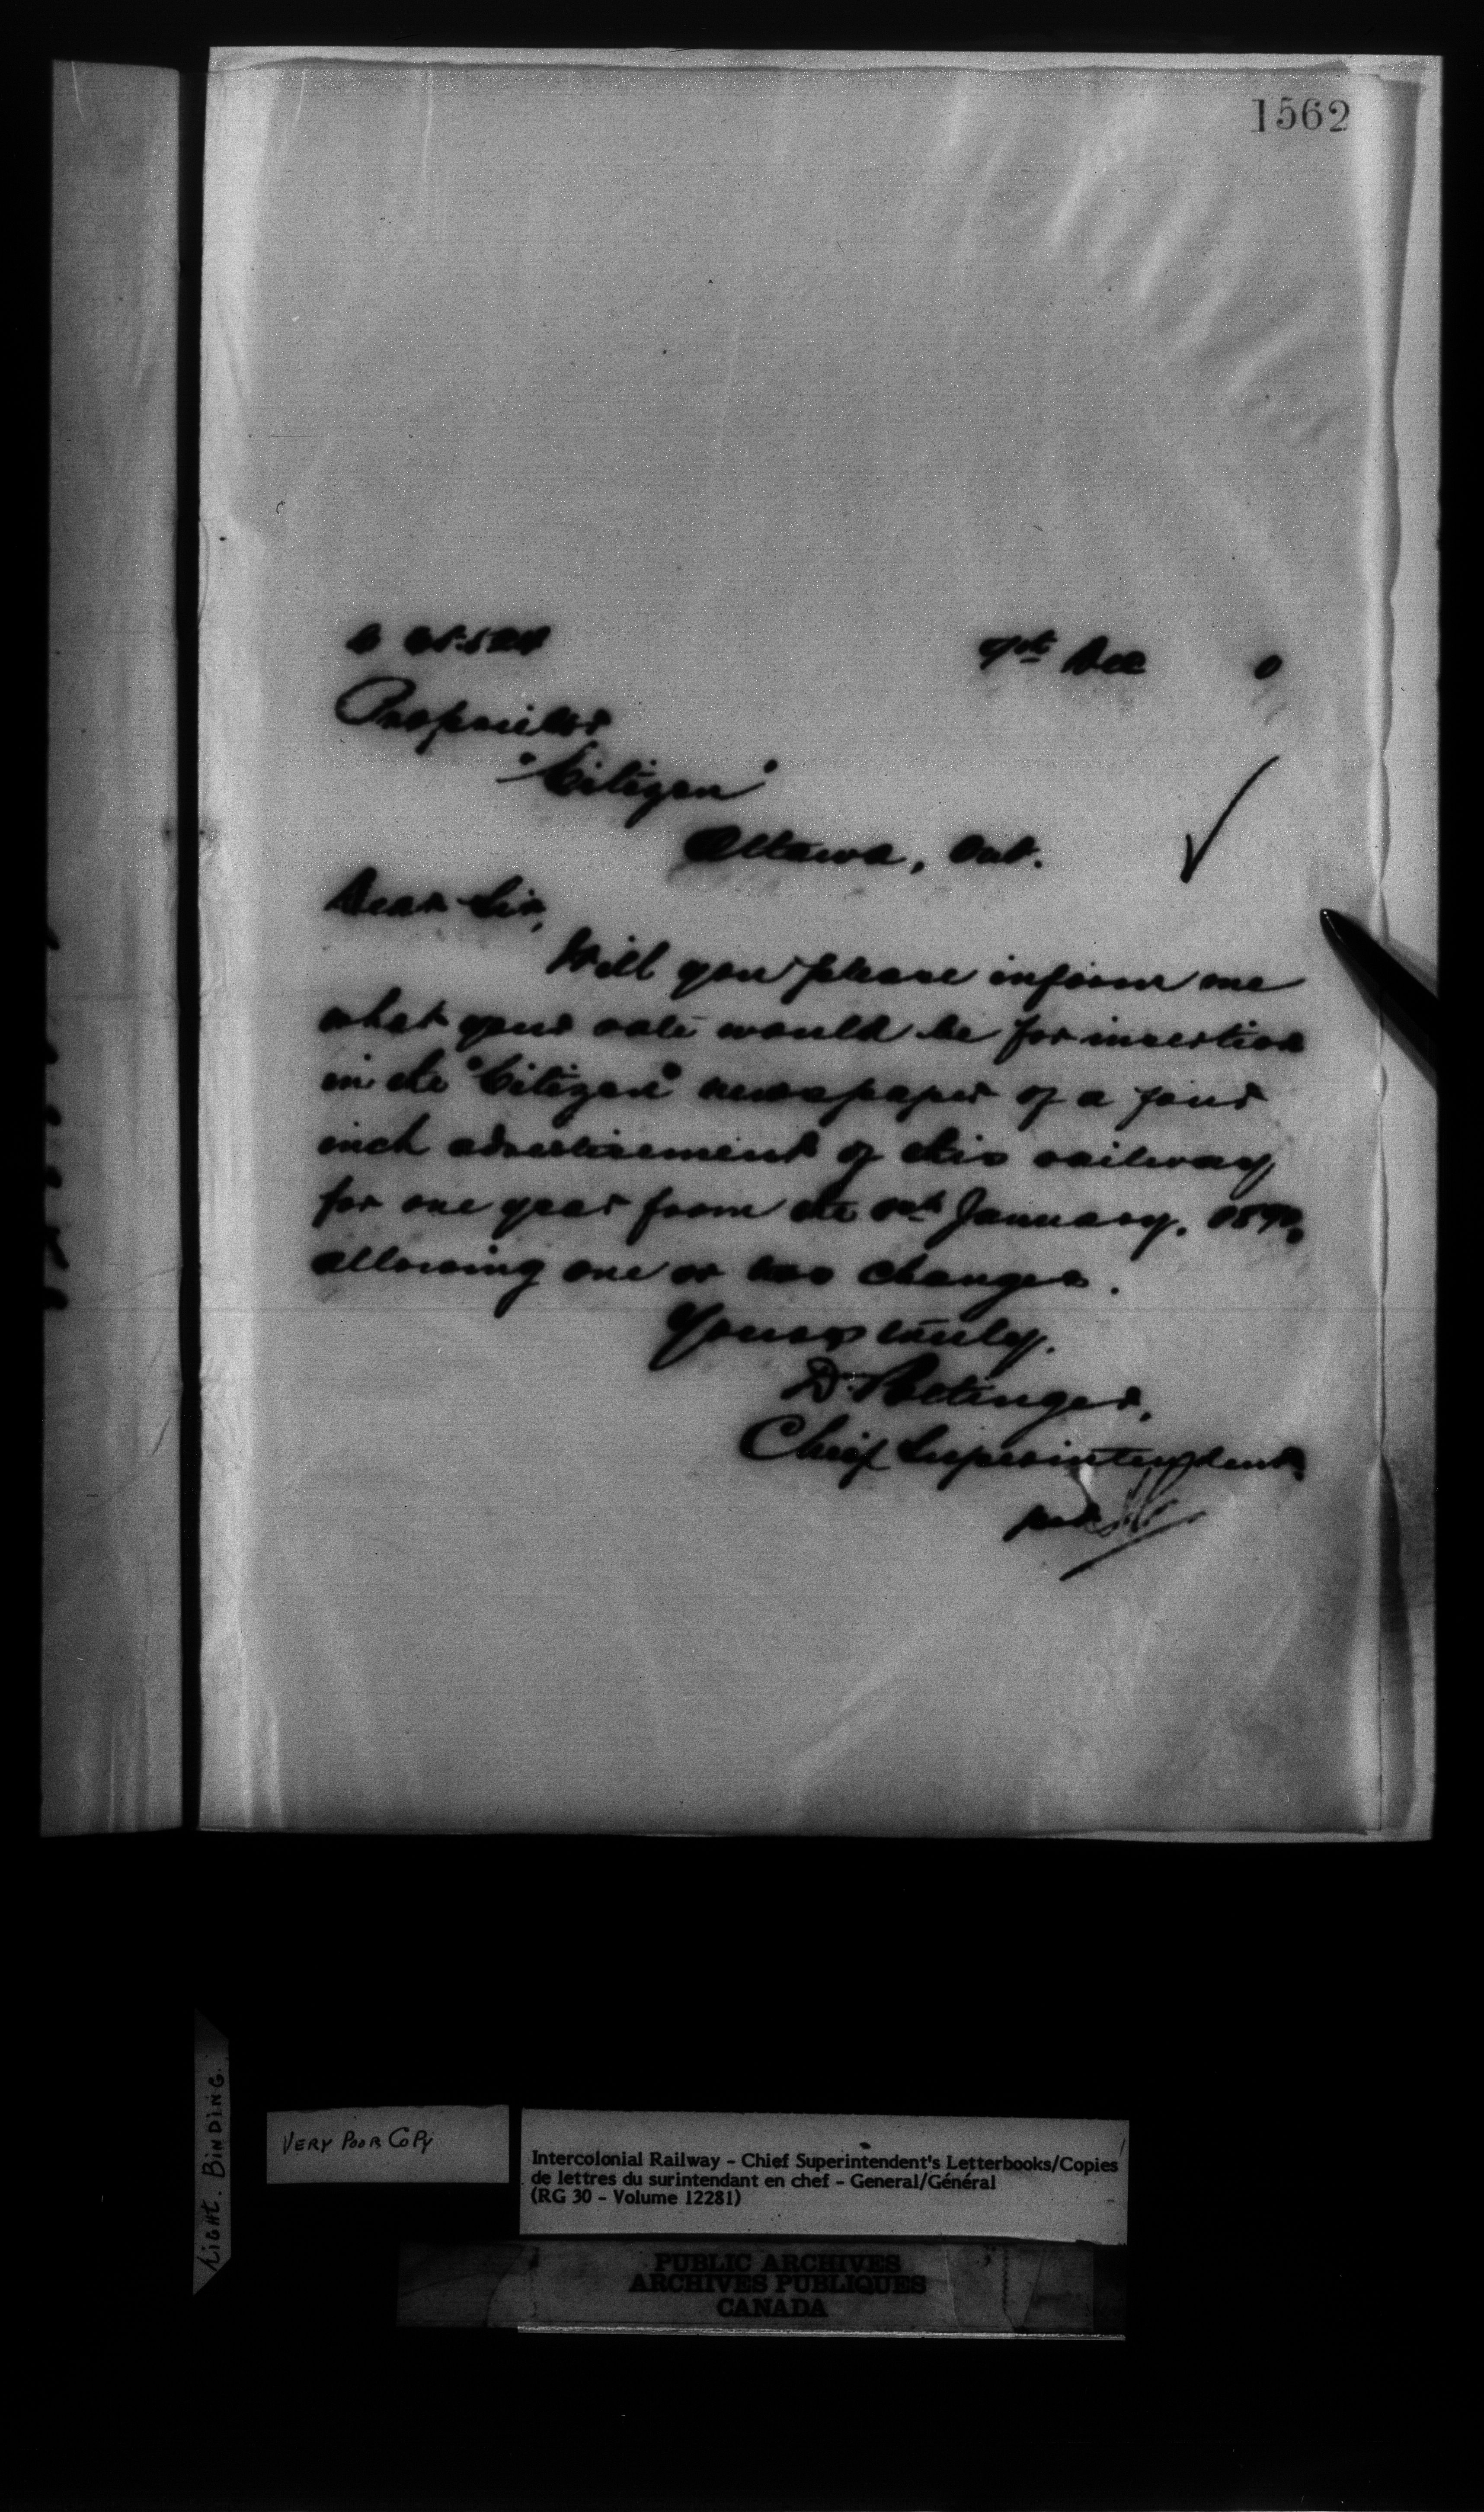 1562
9th Dec 0
Proprietor
"Citizen"
Ottawa, Ont.
Dear Sir,
Will you please inform me
what your rate would be for insertion
in the "Citizen" newspaper of a four
inch advertisement of this railway
for one year from the 1st January, 1890,
allowing one or two changes.
Yours truly,
D. Pottinger,
Chief Superintendent
per
LIGHT. BINDING.
VERY POOR COPY
Intercolonial Railway - Chief Superintendent's Letterbooks/Copies
de lettres du surintendant en chef - General/Général
(RG 30 - Volume 12281)
PUBLIC ARCHIVES
ARCHIVES PUBLIQUES
CANADA